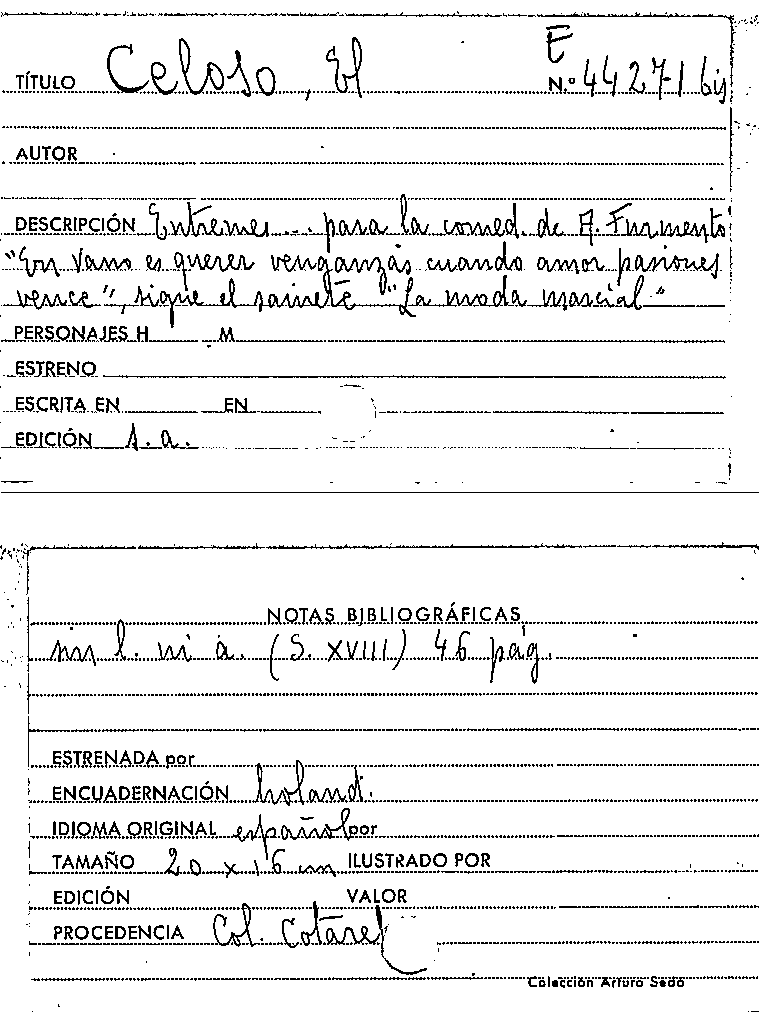 E
TÍTULO Celoso, El N.º 44271 bis
AUTOR
DESCRIPCIÓN Entremes... para la comed. de A. Furmento
"En vano es querer venganzas cuando amor pasiones
vence", sigue el sainete "La moda marcial"
PERSONAJES H M
ESTRENO
ESCRITA EN EN
EDICIÓN s.a.
NOTAS BIBLIOGRÁFICAS
sin l. ni a. (S. XVIII) 46 pág.
ESTRENADA por
ENCUADERNACIÓN holand.
IDIOMA ORIGINAL español por
TAMAÑO 20 x 16 cm ILUSTRADO POR
EDICIÓN VALOR
PROCEDENCIA Col. Cotarel
Colección Arturo Sedó